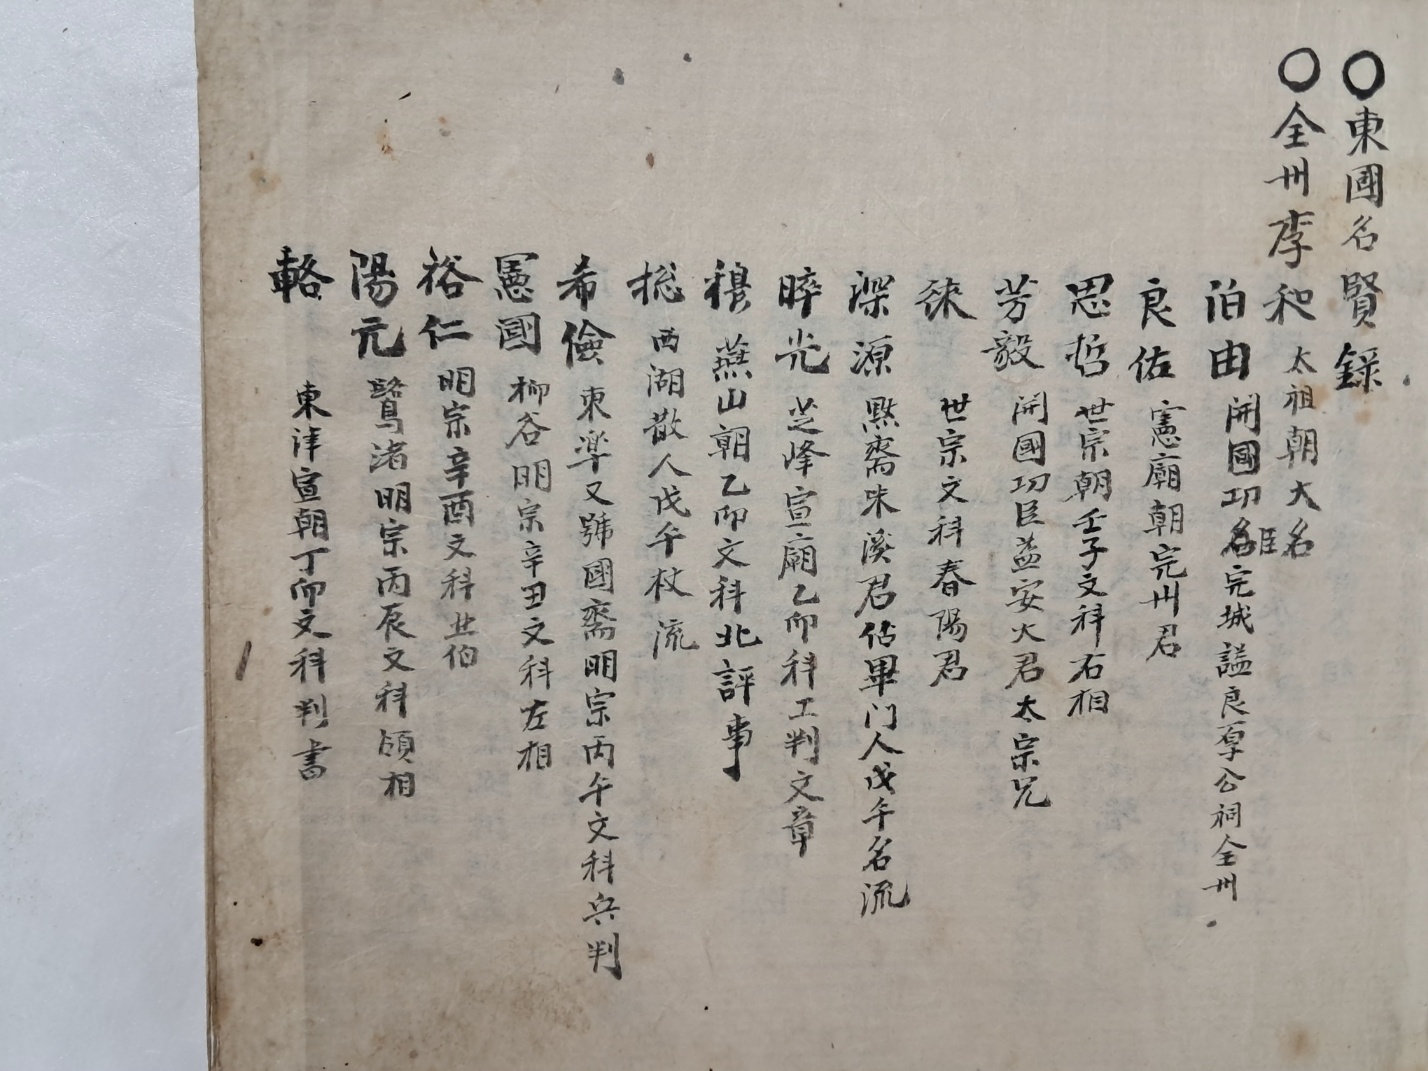 ○東國名賢錄
○全州李和 太祖朝大名
伯由 開國功臣完城謚良厚公祠全州
良佐 憲廟朝完州君
思哲 世宗朝壬子文科右相
芳毅 開國功臣益安大君太宗兄
徠 世宗文科春陽君
深源 默齋朱溪君佔畢门人戊午名流
睟光 芝峰宣廟乙卯科工判文章
穆 燕山朝乙卯文科北評事
摠 西湖散人戊午杖流
希儉 東皐又號國齋明宗丙午文科兵判
憲國 柳谷明宗辛丑文科左相
裕仁 明宗辛酉文科 伯
陽元 鷺渚明宗丙辰文科領相
輅 東津宣朝丁卯文科判書